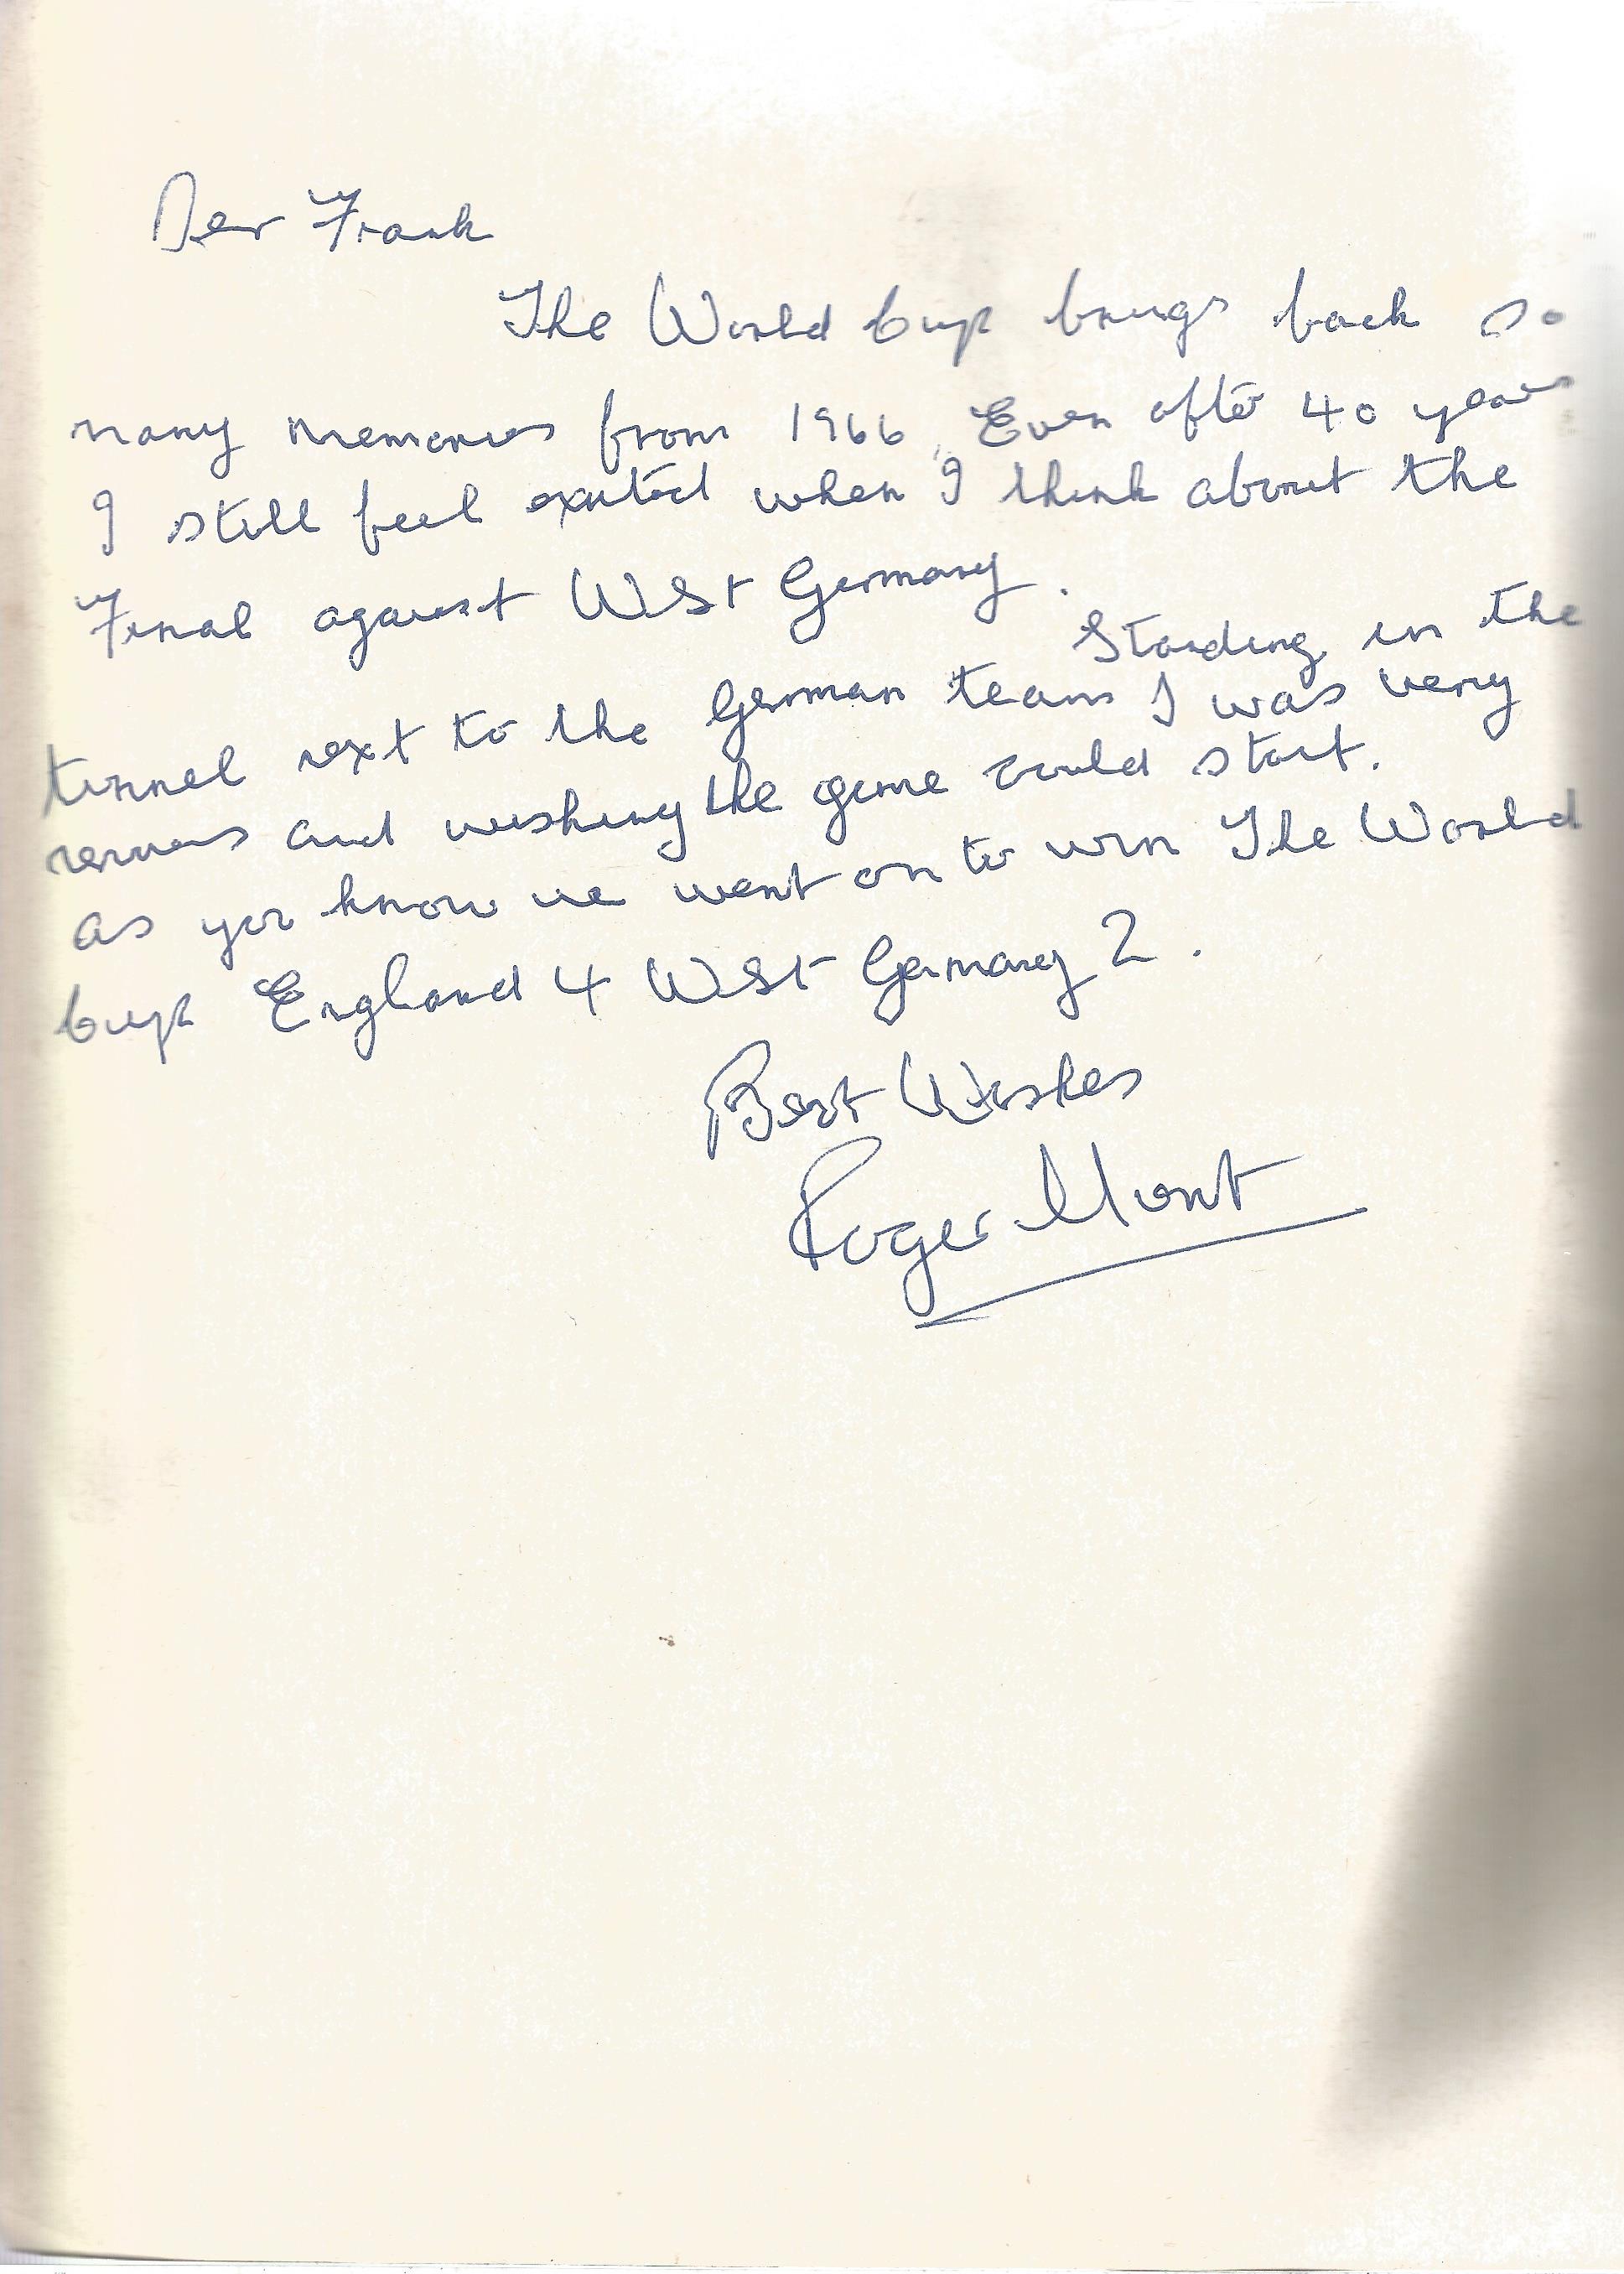 Dear Frank
The World Cup brings back so
many memories from 1966. Even after 40 years
I still feel exited when I think about the
Final against West Germany.
Standing in the
tunnel next to the German team I was very
nervous and wishing the game could start.
as you know we went on to win The World
Cup England 4 West Germany 2.
Best Wishes
Roger Hunt